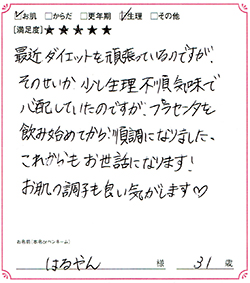 ☑お肌 □からだ □更年期 ☑生理 □その他
[満足度] ★★★★★
最近ダイエットを頑張っているのですが、
そのせいか少し生理不順気味で
心配していたのですが、プラセンタを
飲み始めてから順調になりました。
これからもお世話になります!
お肌の調子も良い気がします♡
お名前(本名orペンネーム)
はるやん 様 31 歳